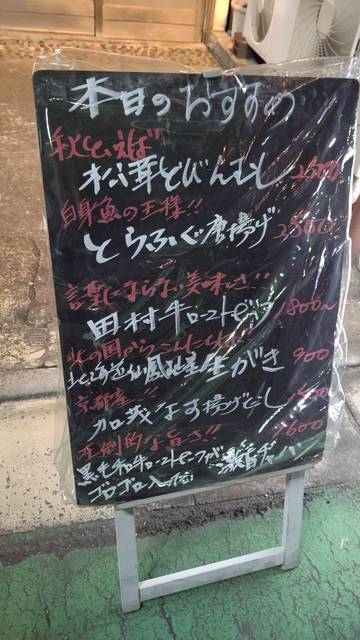 本日のおすすめ
秋といえば
松茸どびんむし 2500
白身魚の王様!!
とらふぐ唐揚げ 2500
言葉にならない美味しさ!!
田村牛ローストビーフ 1800〜
北の国から
北海道仙鳳趾産 生がき 900
京都産!!
加茂なす揚げだし
圧倒的な旨さ!! 1600
黒毛和牛ローストビーフが
ゴロゴロ入った